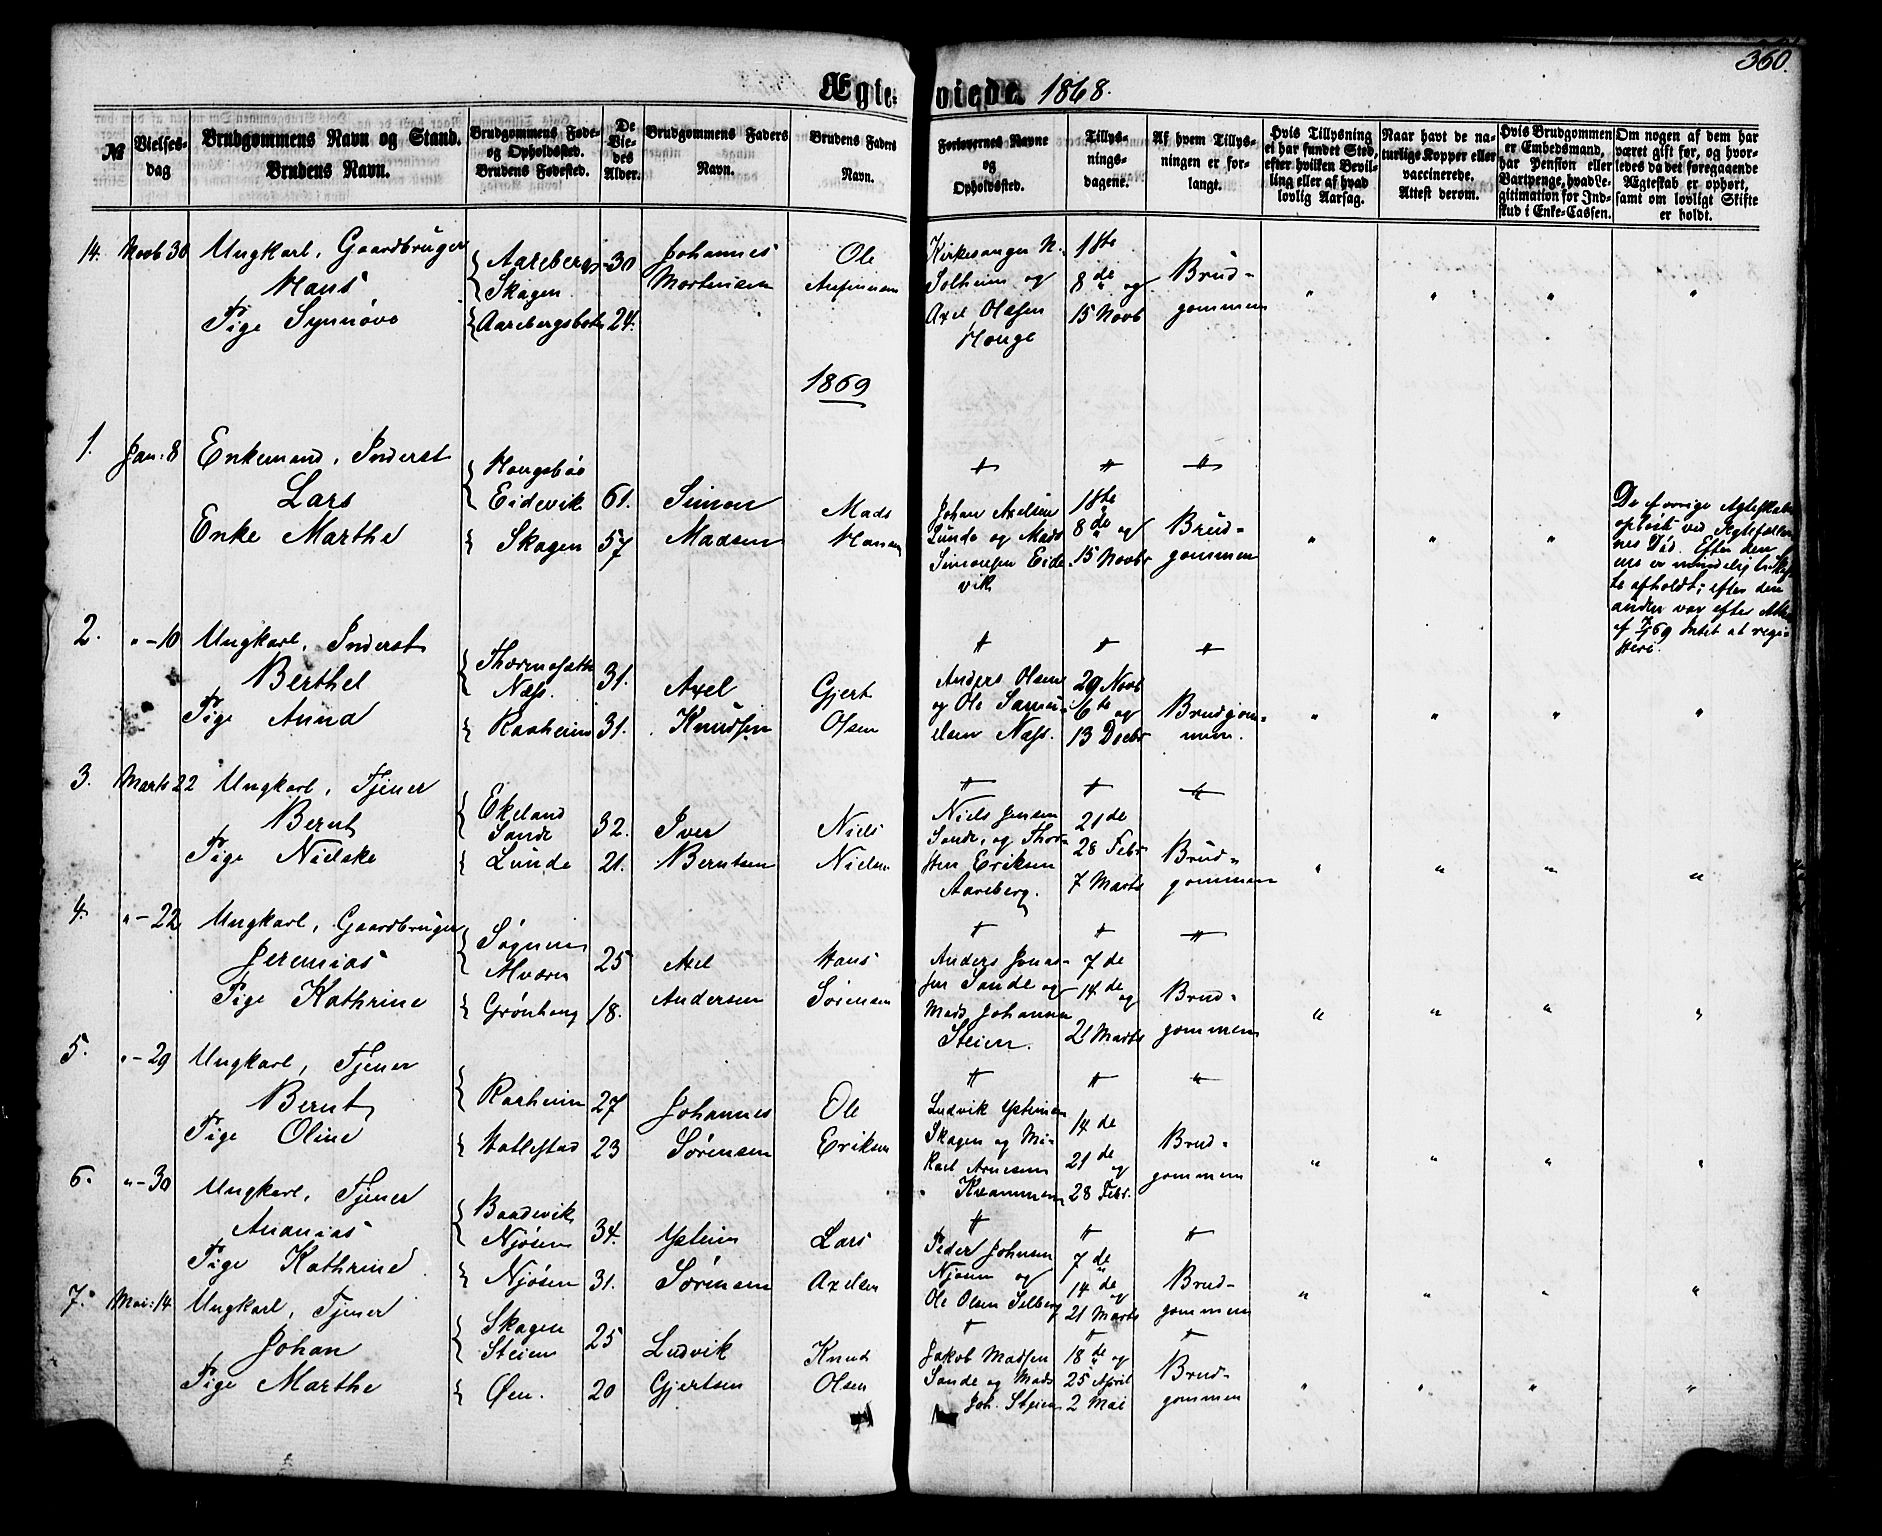 360.
Ægteviede. 1868.
№
Vielses-
dag
Brudgommens Navn og Stand.
Brudens Navn.
Brudgommens Føde-
og Opholdssted.
Brudens Fødested.
De
Vie-
des
Alder.
Brudgommens Faders
Navn.
Brudens Faders
Navn.
Forlovernes Navne
og
Opholdssted.
Tillys-
nings-
dagene.
Af hvem Tillys-
ningen er for-
langt.
Hvis Tillysning
ei har fundet Sted,
efter hvilken Bevil-
ling eller af hvad
lovlig Aarsag.
Naar havt de na-
turlige Kopper eller
vaccinerede.
Attest derom.
Hvis Brudgommen
er Embedsmand,
har Pension eller
Vartpenge, hvad Le-
gitimation for Ind-
skud i Enke-Cassen.
Om nogen af dem har
været gift før, og hvor-
ledes da det foregaaende
Ægteskab er ophørt,
samt om lovligt Skifte
er holdt.
14. Novb 30 Ungkarl, Gaardbruger
Hans
Pige Synnøve
Skagen 30
24.
Johannes
Mortensen
Ole
Kirkesanger N.
Solheim og
Axel Olsen
Houge
1ste
8de og
15 Novb
Brud-
gommen
" " " "
1869
1. Jan: 8 Enkemand, Inderst
Lars
Enke Marthe
Eidevik 61.
Skagen 57
Simon
Madsen
Mads
Hansen
Johan Axelsen
Lunde og Mads
Simonsen Eide
vik
1ste
8de og
15 Novbr
Brud-
gommen
" " "
De forrige Ægteskaber
opløst ved Ægtefæller
nes Død. Efter den
ene er mindelig Skif
te afholdt; efter den
anden var efter Attest
af 69 Intet at regi-
strere.
2. " - 10 Ungkarl, Inderst
Berthel
Pige Anna
Næss. 31.
Raaheim 31.
Axel
Knudsen
Gjert
Olsen
Anders Olsen
og Ole Samu-
elsen Næss.
29 Novb
6te og
13 Decbr
Brudgom-
men.
" " " "
3. Marts 22 Ungkarl, Tjener
Bernt
Pige Nielske
Ekeland
Sande 32.
Lunde 21.
Iver
Berntsen
Niels
Nielsen
Niels Jensen
Sande, og Thor-
sten Eriksen
Aareberg.
21de
28 Febr
7 Marts
Brud-
gommen
" " " "
4. " - 22 Ungkarl, Gaardbruger
Jeremias
Pige Kathrine
Sognum
Alværen 25
Grønhaug 18.
Axel
Andersen
Hans
Sørensen
Anders Jonas-
sen Sande og
Mads Johannes
Steien.
7de
14de og
21 Marts
Brud-
gommen
" " " "
5. " - 29 Ungkarl, Tjener
Bernt
Pige Oline
Raaheim 27
Hatlestad 23
Johannes
Sørensen
Ole
Eriksen
Ludvik Ystensen
Skagen og Mi-
kael Arnesen
Kvammen
14de
21de og
28 Febr.
Brud-
gommen
" " " "
6. " - 30 Ungkarl, Tjener
Ananias
Pige Kathrine
Baadevik
Njøsen 34.
Njøsen 31.
Ystein
Sørensen
Lars
Axelsen
Peder Johnsen
Njøsen og
Ole Olsen Selberg
7de
14de og
21 Marts
Brud-
gommen
" " " "
7. Mai: 14 Ungkarl, Tjener
Johan
Pige Marthe
Skagen
Steien 25
Øen. 20
Ludvik
Gjertsen
Knud
Olsen
Jakob Madsen
Sande og Mads
Joh. Steien
18de og
25 April
2 Mai
Brud-
gommen
" " " "